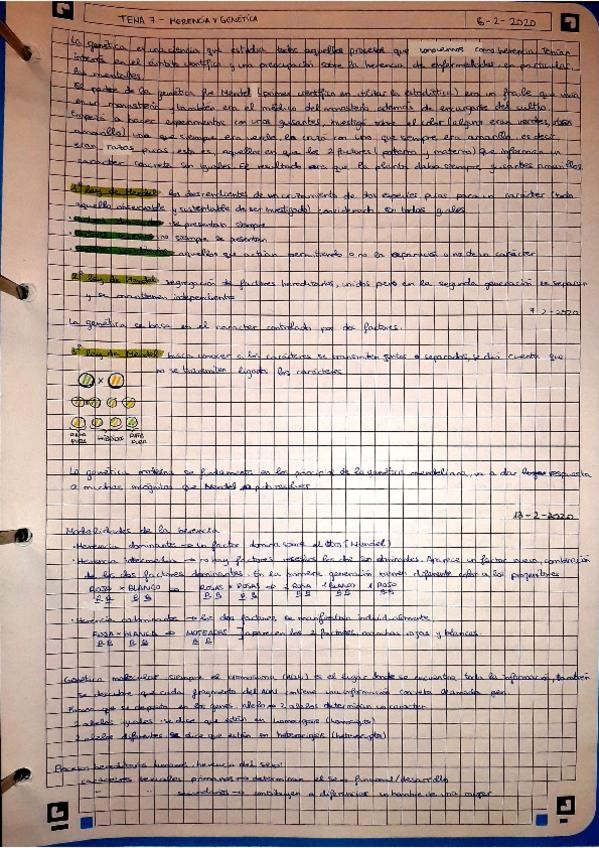 TEMA 7 - HERENCIA Y GENÉTICA 6-2-2020
La genética es una ciencia que estudia todos aquellos procesos que conocemos como herencia. Tenían
interés en el ámbito científico y una preocupación sobre la herencia de enfermedades, en particular
las mentales.
El padre de la genética fue Mendel (primer científico en utilizar la estadística) era un fraile que vivía
en un monasterio y también era el médico del monasterio además de encargarse del cultivo.
Empezó a hacer experimentos con unos guisantes, investigó sobre el color (algunos eran verdes, otros
amarillo) una que siempre era verde, la cruzó con una que siempre era amarilla, es decir
eran razas puras, esto es, aquellas en que los 2 factores (paterno y materno) que informan un
carácter concreto son iguales. El resultado era que la planta daba siempre guisantes amarillos.
1ª Ley de Mendel: los descendientes de un cruzamiento de dos especies puras para un carácter (todo
aquello observable y sustentable de ser investigado) considerado son todos iguales.
se presentan siempre
no siempre se presentan
aquellos que actúan permitiendo o no la expresión o no de un carácter
2ª Ley de Mendel: segregación de factores hereditarios, unidos pero en la segunda generación se separan
y se mantienen independiente
7-2-2020
La genética se basa en el carácter controlado por dos factores.
3ª Ley de Mendel: busca conocer si los caracteres se transmiten juntos o separados, se dió cuenta que
no se transmiten ligados los caracteres
x
RAZA PURA HÍBRIDOS RAZA PURA
La genética moderna se fundamenta en los principios de la genética mendeliana, va a dar respuesta
a muchas incógnitas que Mendel no pudo resolver
13-2-2020
Modalidades de la herencia
· Herencia dominantes → un factor domina sobre el otro (Mendel)
· Herencia intermedia → no hay factores dominados. Aparece un factor nuevo, combinación
de los dos factores dominantes. En la primera generación tienen diferente color a los progenitores
ROJO x BLANCO → ROSAS x ROSAS → 2 ROSA 1 BLANCO 1 ROJO
· Herencia codominante → los dos factores se manifiestan individualmente.
ROJA x BLANCA → MOTEADAS ] aparecen los 2 factores, manchas rojas y blancas.
Genética molecular siempre el cromosoma (ADN) es el lugar donde se encuentra toda la información, también
se descubre que cada fragmento del ADN contiene una información concreta llamada gen.
que se deposita en los genes: alelo → 2 alelos determinan un carácter
2 alelos iguales: se dice que están en homocigosis (homocigoto)
2 alelos diferentes: se dice que están en heterocigosis (heterocigoto)
Procesos hereditarios humanos: herencia del sexo:
caracteres sexuales primarios → determinan el sexo funcional/desarrollo
secundarios → contribuyen a diferenciar un hombre de una mujer